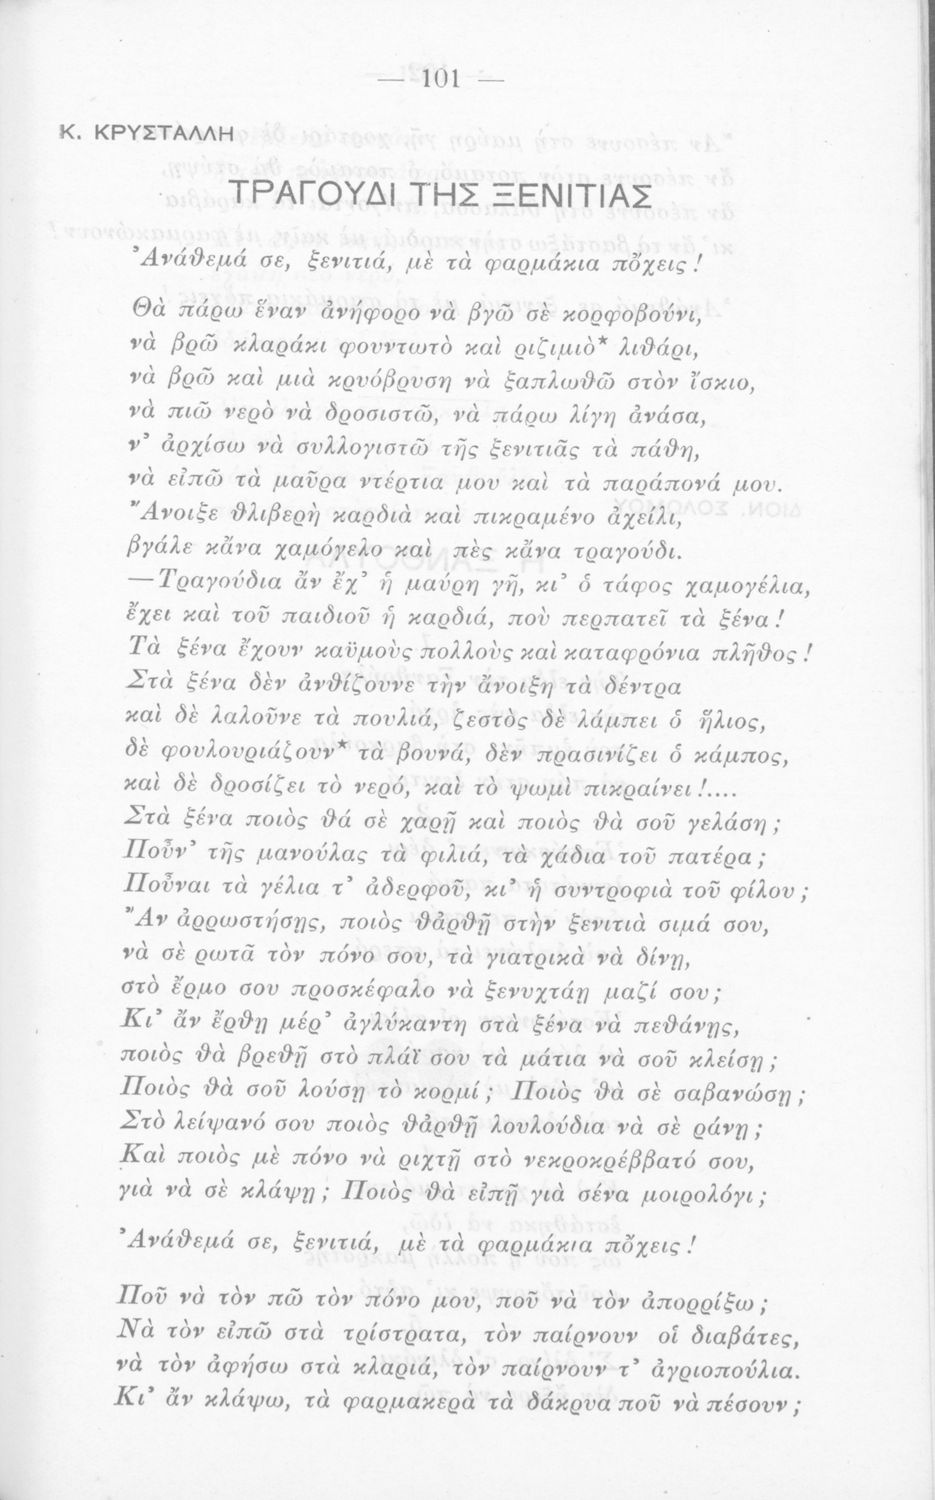 — 101 —
Κ. ΚΡΥΣΤΑΛΛΗ
ΤΡΑΓΟΥΔΙ ΤΗΣ ΞΕΝΙΤΙΑΣ
Ἀνάθεμά σε, ξενιτιά, μὲ τὰ φαρμάκια πὄχεις !
Θὰ πάρω ἕναν ἀνήφορο νὰ βγῶ σὲ κορφοβούνι,
νὰ βρῶ κλαράκι φουντωτὸ καὶ ριζιμιὸ* λιθάρι,
νὰ βρῶ καὶ μιὰ κρυόβρυση νὰ ξαπλωθῶ στὸν ἴσκιο,
νὰ πιῶ νερὸ νὰ δροσιστῶ, νὰ πάρω λίγη ἀνάσα,
ν’ ἀρχίσω νὰ συλλογιστῶ τῆς ξενιτιᾶς τὰ πάθη,
νὰ εἰπῶ τὰ μαῦρα ντέρτια μου καὶ τὰ παράπονά μου.
Ἄνοιξε θλιβερὴ καρδιὰ καὶ πικραμένο ἀχείλι,
βγάλε κἄνα χαμόγελο καὶ πὲς κἄνα τραγούδι.
—Τραγούδια ἄν ἔχ’ ἡ μαύρη γῆ, κι’ ὁ τάφος χαμογέλια,
ἔχει καὶ τοῦ παιδιοῦ ἡ καρδιά, ποὺ περπατεῖ τὰ ξένα !
Τὰ ξένα ἔχουν καϋμοὺς πολλοὺς καὶ καταφρόνια πλῆθος !
Στὰ ξένα δὲν ἀνθίζουνε τὴν ἄνοιξη τὰ δέντρα
καὶ δὲ λαλοῦνε τὰ πουλιά, ζεστὸς δὲ λάμπει ὁ ἥλιος,
δὲ φουλουριάζουν* τὰ βουνά, δὲν πρασινίζει ὁ κάμπος,
καὶ δὲ δροσίζει τὸ νερό, καὶ τὸ ψωμὶ πικραίνει !....
Στὰ ξένα ποιὸς θά σὲ χαρῇ καὶ ποιὸς θὰ σοῦ γελάση ;
Ποῦν’ τῆς μανούλας τὰ φιλιά, τὰ χάδια τοῦ πατέρα ;
Ποὖναι τὰ γέλια τ’ ἀδερφοῦ, κι’ ἡ συντροφιὰ τοῦ φίλου ;
Ἄν ἀρρωστήσῃς, ποιὸς θἀρθῇ στὴν ξενιτιὰ σιμά σου,
νὰ σὲ ρωτᾶ τὸν πόνο σου, τὰ γιατρικὰ νὰ δίνῃ,
στὸ ἔρμο σου προσκέφαλο νὰ ξενυχτάῃ μαζί σου ;
Κι’ ἄν ἔρθῃ μέρ’ ἀγλύκαντη στὰ ξένα νὰ πεθάνῃς,
ποιὸς θὰ βρεθῇ στὸ πλάϊ σου τὰ μάτια νὰ σοῦ κλείσῃ ;
Ποιὸς θὰ σοῦ λούσῃ τὸ κορμί ; Ποιὸς θὰ σὲ σαβανώσῃ ;
Στὸ λείψανό σου ποιὸς θἀρθῇ λουλούδια νὰ σὲ ράνῃ ;
Καὶ ποιὸς μὲ πόνο νὰ ριχτῇ στὸ νεκροκρέββατό σου,
γιὰ νὰ σὲ κλάψῃ ; Ποιὸς θὰ εἰπῇ γιὰ σένα μοιρολόγι ;
Ἀνάθεμά σε, ξενιτιά, μὲ τὰ φαρμάκια πὄχεις !
Ποῦ νὰ τὸν πῶ τὸν πόνο μου, ποῦ νὰ τὸν ἀπορρίξω ;
Νὰ τὸν εἰπῶ στὰ τρίστρατα, τὸν παίρνουν οἱ διαβάτες,
νὰ τὸν ἀφήσω στὰ κλαριά, τὸν παίρνουν τ’ ἀγριοπούλια.
Κι’ ἄν κλάψω, τὰ φαρμακερὰ τὰ δάκρυα ποῦ νὰ πέσουν ;